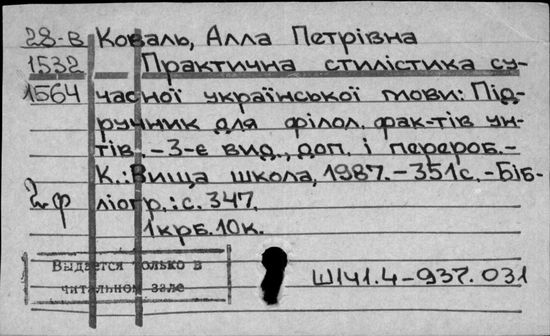 28-в Коваль, Алла Петрівна
1532 Практична стилістика су-
1564 часної української мови: Під-
ручник для філол. фак-тів ун-
тів. - 3-є вид., доп. і перероб. -
К.: Вища школа, 1987. - 351с. - Біб-
2ф ліогр.: с. 347.
1крб. 10к.
Выдается только в
читальном зале
Ш141.4-937.031